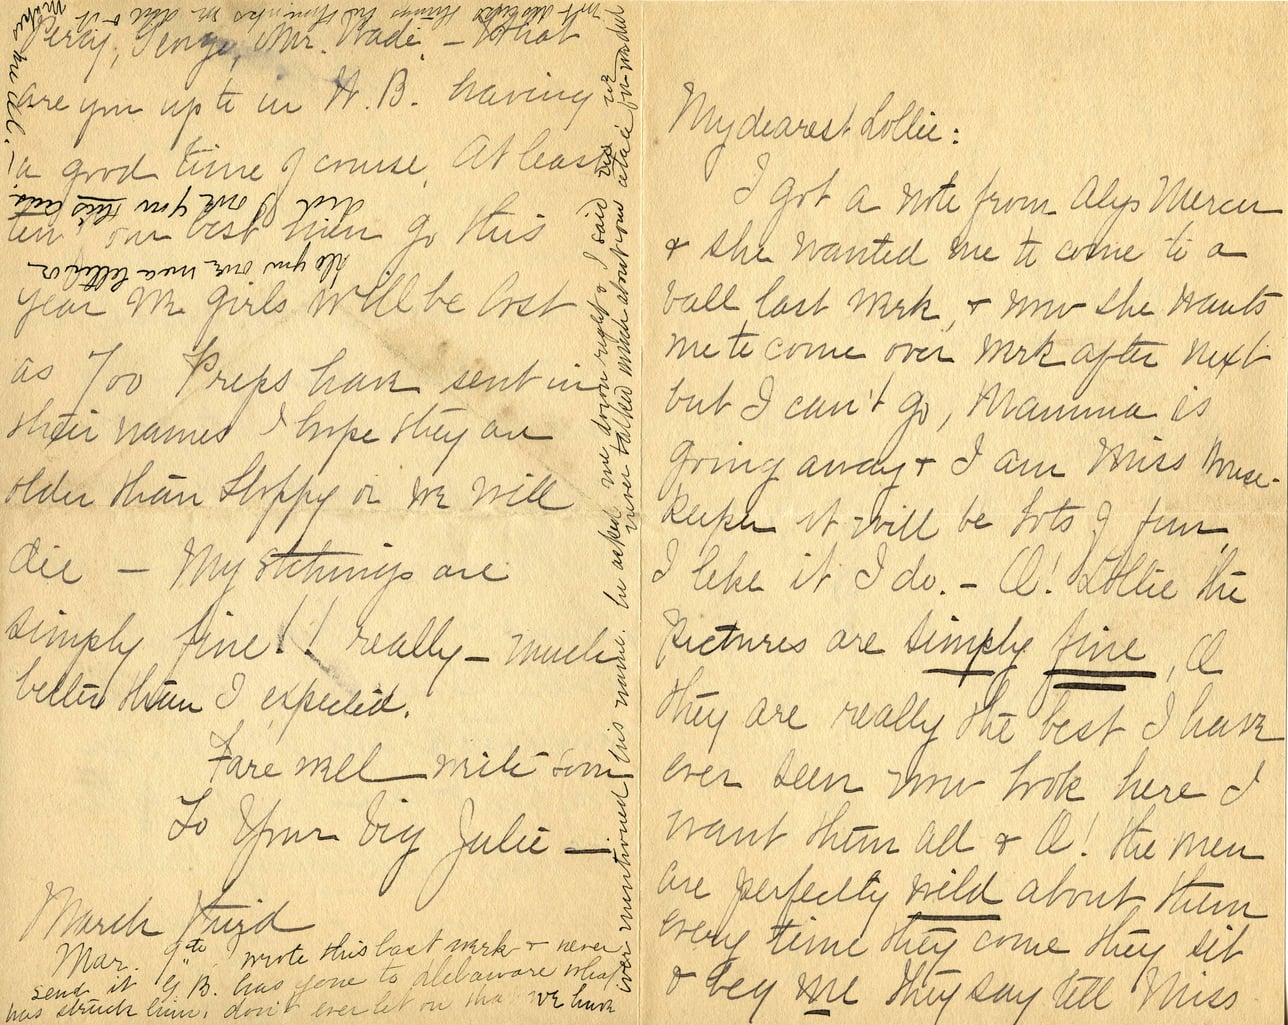 My dearest Lollie:
I got a note from Alys Mercer
& she wanted me to come to a
ball last week, & now she wants
me to come over week after next
but I can't go, Mamma is
going away & I am Miss House-
keeper it will be lots of fun,
I like it I do. – O! Lollie the
pictures are simply fine, O
they are really the best I have
ever seen now look here I
want them all & O! the men
are perfectly wild about them
every time they come they sit
& beg me they say tell Miss
Percy, George, Mr. Wade. – What
are you up to in N. B. having
a good time of course. At least
ten of our best men go this
year we girls will be lost
as 700 Preps have sent in
their names I hope they are
older than Sloppy or we will
die – My things are
simply fine!! really – much
better than I expected.
Fare well write soon
To Your big Julie –
March third
Mar. 9th wrote this last week & never
send it G B. has gone to Delaware what
has struck him, don't ever let on that we have
ever mentioned his name. he asked me down right & I said we
never talked much about you
did I owe you this
No you owe me a letter or